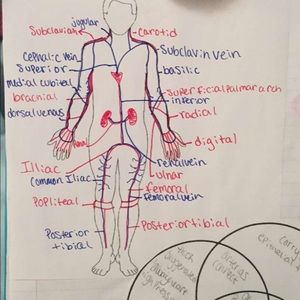 jugular
Subclavian
carotid
cephalic vein
Subclavin vein
superior
basilic
medial cubital
Superficial palmar arch
brachial
inferior
dorsal venous
radial
digital
Renal
Illiac
renalvein
Common Iliac
ulnar
femoral
femoralvein
Popliteal
Posterior
tibial
Posterior tibial
thick
carry
arteries